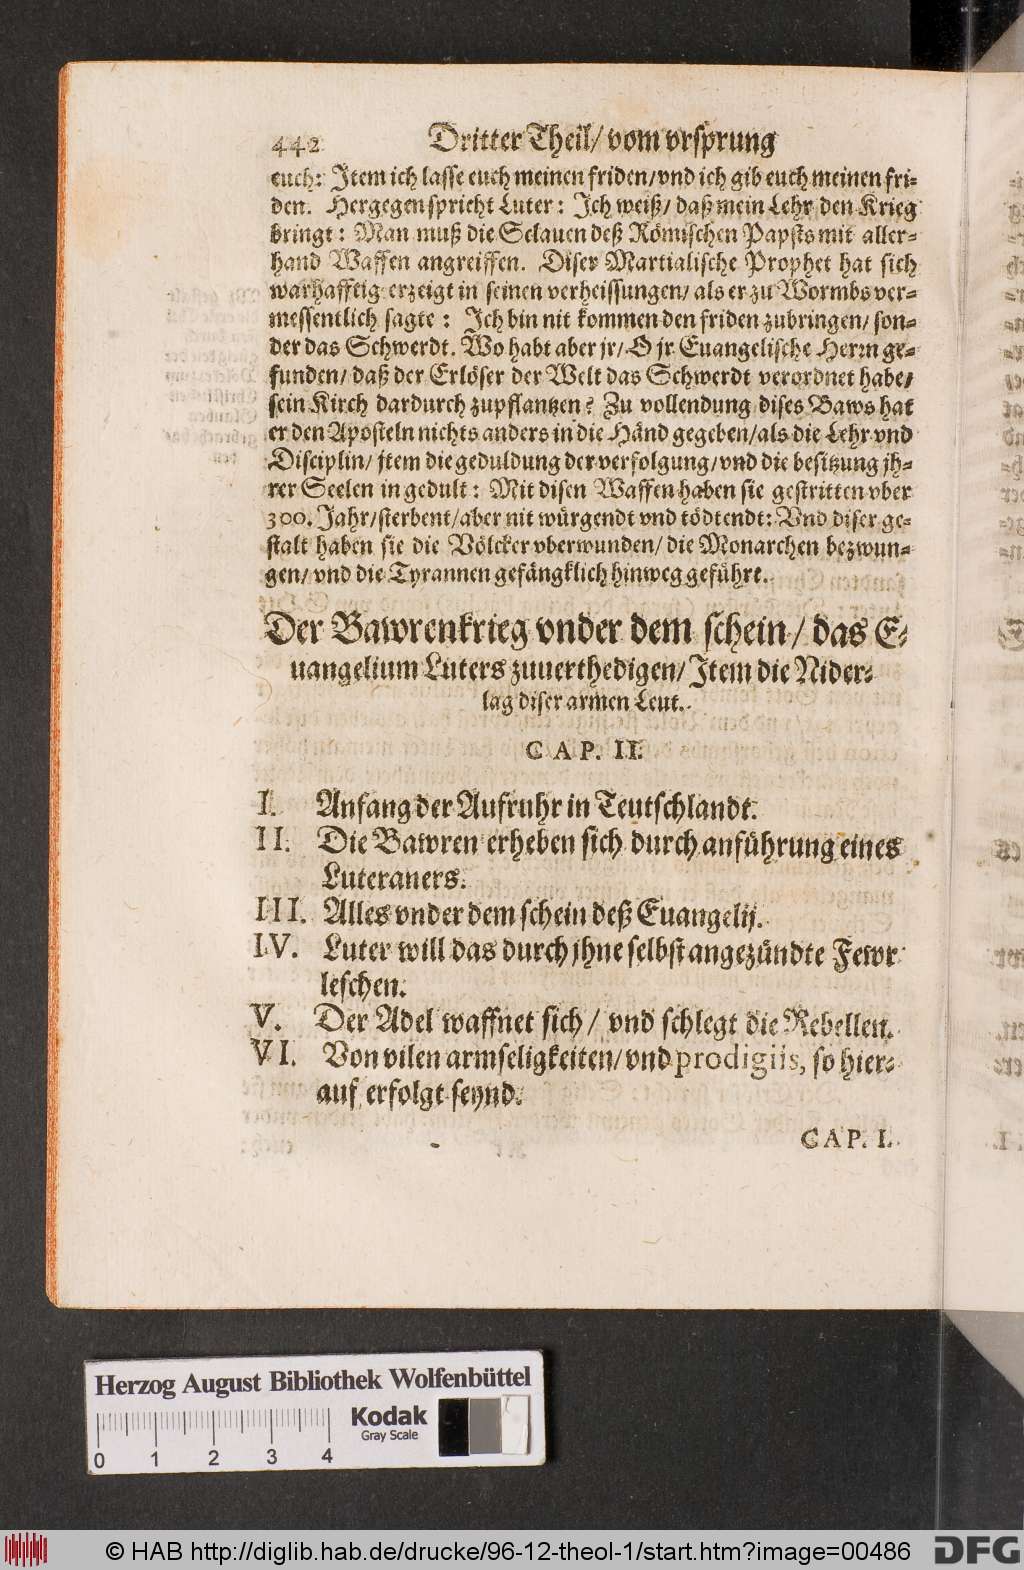 442 Dritter Theil/ vom vrsprung
euch: Jtem ich lasse euch meinen friden/ vnd ich gib euch meinen fri-
den. Hergegen spricht Luter: Jch weiß/ daß mein Lehr den Krieg
bringt: Man muß die Sclauen deß Römischen Papsts mit aller-
hand Waffen angreiffen. Diser Martialische Prophet hat sich
warhafftig erzeigt in seinen verheissungen/ als er zu Wormbs ver-
messentlich sagte: Jch bin nit kommen den friden zubringen/ son-
der das Schwerdt. Wo habt aber jr/ O jr Euangelische Herrn ge-
funden/ daß der Erlöser der Welt das Schwerdt verordnet habe/
sein Kirch dardurch zupflantzen? Zu vollendung dises Baws hat
er den Aposteln nichts anders in die Händ gegeben/ als die Lehr vnd
Disciplin/ jtem die geduldung der verfolgung/ vnd die besitzung jh-
rer Seelen in gedult: Mit disen Waffen haben sie gestritten vber
300. Jahr/ sterbent/ aber nit würgendt vnd tödtendt: Vnd diser ge-
stalt haben sie die Völcker vberwunden/ die Monarchen bezwun-
gen/ vnd die Tyrannen gefängklich hinweg geführt.
Der Bawrenkrieg vnder dem schein/ das E-
uangelium Luters zuuerthedigen/ Jtem die Nider-
lag diser armen Leut.
CAP. II.
I. Anfang der Aufruhr in Teutschlandt.
II. Die Bawren erheben sich durch anführung eines
Luteraners.
III. Alles vnder dem schein deß Euangelij.
IV. Luter will das durch jhne selbst angezündte Fewr
leschen.
V. Der Adel waffnet sich/ vnd schlegt die Rebellen.
VI. Von vilen armseligkeiten/ vnd prodigiis, so hier-
auf erfolgt seynd.
CAP. I.
Herzog August Bibliothek Wolfenbüttel
Kodak
Gray Scale
0 1 2 3 4
© HAB http://diglib.hab.de/drucke/96-12-theol-1/start.htm?image=00486
DFG